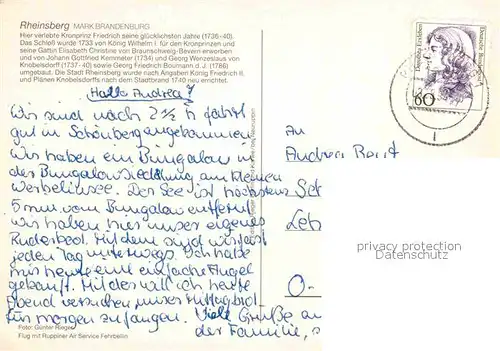 Rheinsberg MARK BRANDENBURG
Hier verlebte Kronprinz Friedrich seine glücklichsten Jahre (1736-40).
Das Schloß wurde 1733 von König Wilhelm I. für den Kronprinzen und
seine Gattin Elisabeth Christine von Braunschweig-Bevern erworben
und von Johann Gottfried Kemmeter (1734) und Georg Wenzeslaus von
Knobelsdorff (1737-40) sowie Georg Friedrich Boumann d. J. (1786)
umgebaut. Die Stadt Rheinsberg wurde nach Angaben König Friedrich II.
und Plänen Knobelsdorffs nach dem Stadtbrand 1740 neu errichtet.
Hallo Andrea!
Wir sind nach 2½ h Fahrt
gut in Schönberg angekommen
Wir haben ein Bungalow in
der Bungalowsiedlung am kleinen
Werbelinsee. Der See ist höchstens
5 min. vom Bungalow entfernt
wir haben hier unser eigenes
Ruderboot. Mit dem sind wir fast
jeden Tag unterwegs. Ich habe
mir heute eine einfache Angel
gekauft. Mit der will ich heute
Abend versuchen unser Mittagbrot
für morgen zu fangen. Viele Grüße an
der Familie,
Foto: Günter Rieger
Flug mit Ruppiner Air Service Fehrbellin
Deutsche Bundespost
60
An
Andrea
Leh
O-
privacy protection
privacy protection